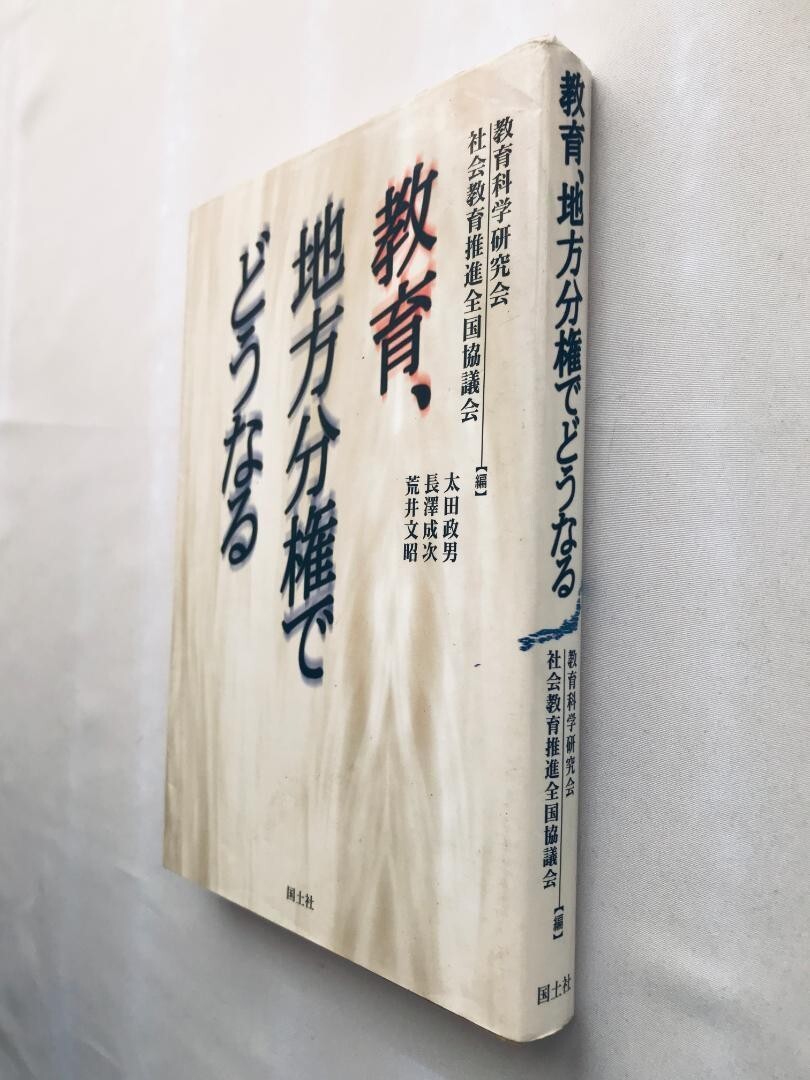 教育科学研究会
社会教育推進全国協議会【編】
太田政男
長澤成次
荒井文昭
教育、
地方分権で
どうなる
国土社
教育、地方分権でどうなる
教育科学研究会
社会教育推進全国協議会【編】
国土社